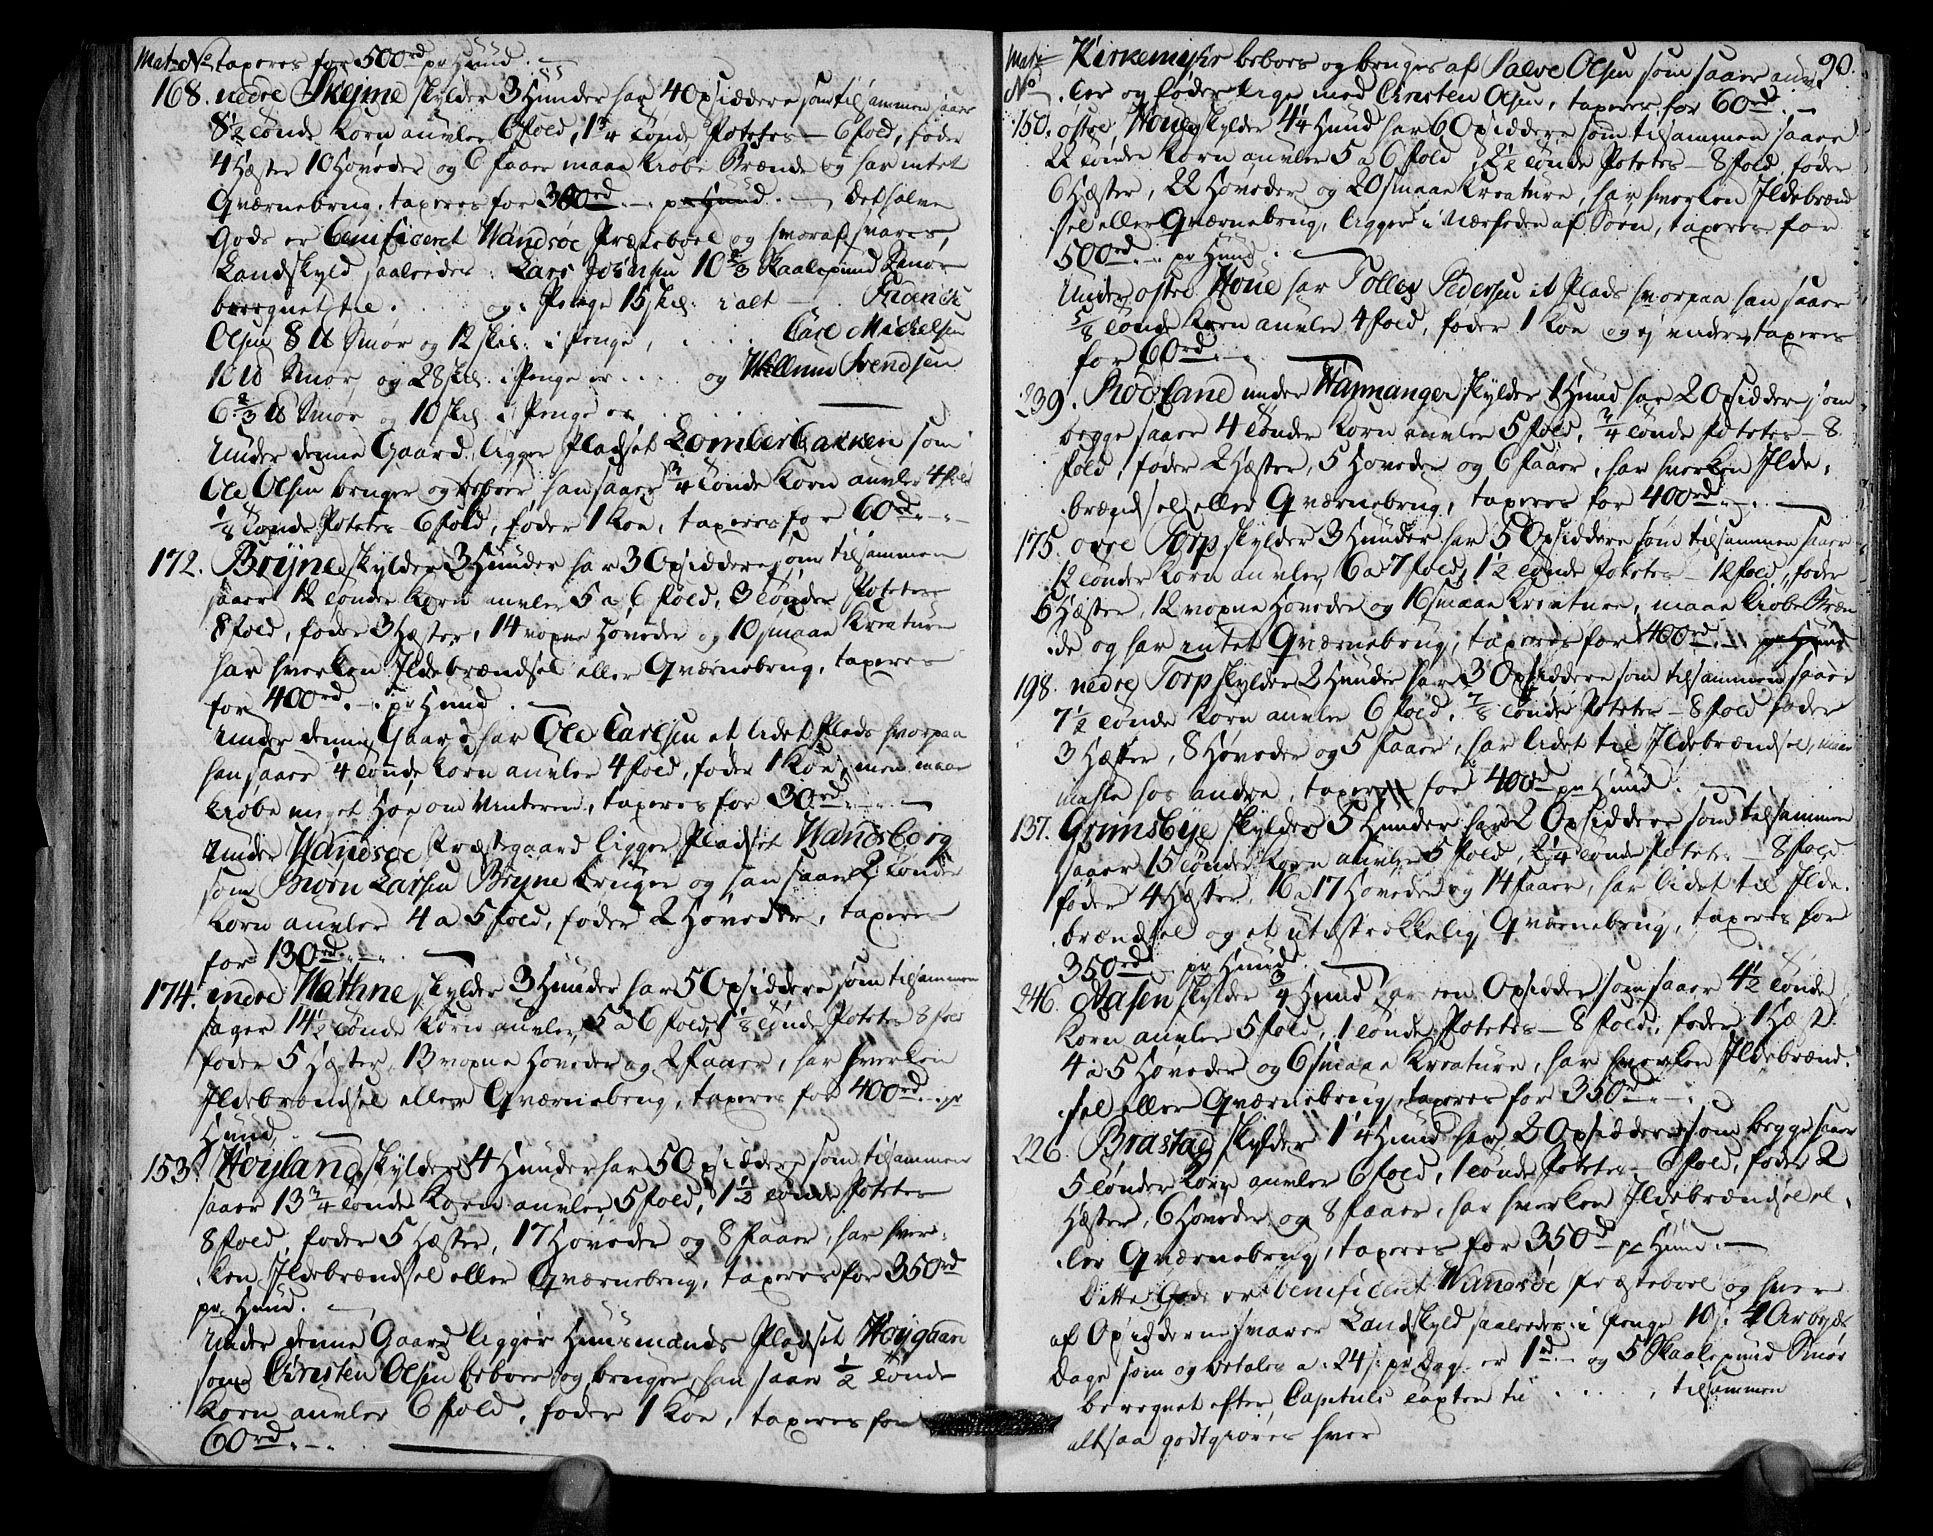 Mats No taxeres for 500rd pr Hund. —
168. nedre Skejme skylder 3 Hunder har 4 Opsiddere som tilsammen saaer
8½ tønde Korn auvler 6 fold, 1¼ tønde Potetes – 6 fold, føder
4 Hæster 10 Høveder og 6 faaer maae kiøbe Brænde og har intet
Qværnebrug, taxeres for 300rd. —. pr Hund. — dethalve
Gods er beneficeret Wandsøe Præsteboel og hvoraf svares,
Landskyld saaledes: Lars 10⅔ Skaalepund Smør
beregnet til . og i Penge 15 skil: i alt — . Frands
Olsen 8 ℔ Smør og 12 skil: i Penge, . . . . Carl Mickelsen
℔ Smør og 28 skil. i Penge er . . . . og Svendsen
6⅔ ℔ Smør og 10 skil. i Penge er . . . .
Under denne Gaard ligger Pladset Lomberbakken som
Ole Olsen bruger og beboer, han saaer ¾ tønde Korn auvler 4 fold
⅛ tønde Potetes – 6 fold, føder 1 Koe, taxeres for 60rd. —. —
172. Brijne skylder 3 Hunder har 3 Opsiddere som tilsammen
saaer 12 tønder Korn auvler 5 a 6 fold, 3 tønder Potetes
8 fold, føder 3 Hæster, 14 voxne Høveder og 10 smaae Kreature
har hverken Ildebrændsel eller Qværnebrug, taxeres
for 400rd. —. pr Hund .
Under denne Gaard har Ole Carlsen et lidet Plads hvorpaa
han saaer ¼ tønde Korn auvler 4 fold, føder 1 Koe, men maae
kiøbe noget Høe om Vinteren, taxeres for 30rd. —. —
Under Wandsøe Præstegaard ligger Pladset Wandsborg
som Biørn Larsen Bryne bruger og han saaer 2 tønder
Korn auvler 4 a 5 fold, føder 2 Høveder, taxeres
for 130rd. —. . —
174. indre Wathne skylder 3 Hunder har 5 Opsiddere som tilsammen
saaer 14½ tønde Korn auvler, 5 a 6 fold, 1⅛ tønde Potetes 8 fold
føder 5 Hæster, 13 voxne Høveder og 2 faaer, har hverken
Ildebrændsel eller Qværnebrug, taxeres for 400rd. —. pr
Hund. —
153. Høyland skylder 4 Hunder har 5 Opsiddere som tilsammen
saaer 13¾ tønde Korn auvler 5 fold, 1½ tønde Potetes
8 fold, føder 5 Hæster, 17 Høveder og 8 faaer, har hver-
ken Ildebrændsel eller Qværnebrug, taxeres for 350rd
pr. Hund. —
Under denne Gaard ligger Huusmands Pladset Høygaard
som Christen Olsen beboer og bruger, han saaer ½ tønde
Korn auvler 6 fold, føder 1 Koe, taxeres for
60rd. —.
90.
Mats No Kirkemyhr beboes og bruges af Salve Olsen som saaer auv-
ler og føder lige med Christen Olsen, taxeres for 60rd. —
150. østre Houe skylder 4¼ Hund har 6 Opsiddere som tilsammen saaer
22 tønder Korn auvler 5 a 6 fold, 2½ tønde Potetes – 8 fold, føder
6 Hæster, 22 Høveder og 20 smaae Kreature, har hverken Ildebrænd-
sel eller Qværnebrug, ligger i Nærheden af Søen, taxeres for
500rd. —. pr Hund . —
Under østre Houe har Tollev Pedersen et Plads hvorpaa han saaer
⅝ tønde Korn auvler 4 fold, føder 1 Koe og ej videre, taxeres
for 60rd. —.
239. Rodland under Warmanger skylder 1 Hund har 2 Opsidder som
begge saaer 4 tønder Korn auvler 5 fold, ¾ tønde Potetes – 8
fold, føder 2 Hæster, 5 Høveder og 6 faaer, har hverken Ilde-
brændsel eller Qværnebrug, taxeres for 400rd. —. —
175. øvre Torp skylder 3 Hunder har 5 Opsiddere som tilsammen saaer
12 tønder Korn auvler 6 a 7 fold, 1½ tønde Potetes – 12 fold, føder
6 Hæster, 12 voxne Høveder og 16 smaae Kreature, maae kiøbe Bræn-
de og har intet Qværnebrug, taxeres for 400rd. —. pr Hund
198. nedre Torp skylder 2 Hunder har 3 Opsiddere som tilsammen saaer
7½ tønde Korn auvler 6 fold, ⅞ tønde Potetes – 8 fold føder
3 Hæster, 8 Høveder og 5 faaer, har lidet til Ildebrændsel, maae
mahle hos andre, taxeres for 400rd pr Hund. —
137. Grimsbye skylder 5 Hunder har 2 Opsiddere som tilsammen
saaer 15 tønder Korn auvler 5 fold, 2¼ tønde Potetes – 8 fold
føder 4 Hæster, 16 a 17 Høveder og 14 faaer, har lidet til Ilde-
brændsel og et utilstrækkelig Qværnebrug, taxeres for
350rd. —. pr Hund. —
246. Aasen skylder ¾ Hund har een Opsidder som saaer 4½ tønde
Korn auvler 5 fold, 1 tønde Potetes – 8 fold, føder 1 Hæst
4 a 5 Høveder og 6 smaae Kreature, har hverken Ildebrænd-
sel eller Qværnebrug, taxeres for 350rd. —.
226. Brastad skylder 1¼ Hund har 2 Opsiddere som begge saaer
5 tønder Korn auvler 6 fold, 1 tønde Potetes – 6 fold, føder 2
Hæster, 6 Høveder og 8 faaer, har hverken Ildebrændsel el-
ler Qværnebrug, taxeres for 350rd pr Hund. —
Dette Gods er beneficeret Wandsøe præsteboel og hver
af Opsidderne svarer Landskyld saaledes: i Penge 10 s. 4 Arbejds
Dage som og betales a: 24 s: pr Dag er 1rd. — og 5 Skaalepund Smør
beregnet efter Capituls taxten til . . . . , tilsammen
altsaa godtgiøres hver